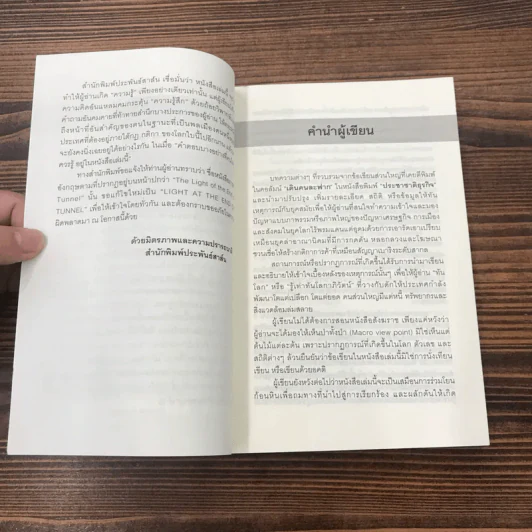 สำนักพิมพ์ประพันธ์สาส์น เชื่อมั่นว่า หนังสือเล่มนี้
ทำให้ผู้อ่านเกิด "ความรู้" เพียงอย่างเดียวเท่านั้น แต่
ความคิดอันแหลมคมกระตุ้น "ความรู้สึก" ด้วย
คำถามอันคมคายที่ท้าทายสำนึกบางประการของผู้อ่าน
ถึงหน้าที่อันสำคัญของคนในฐานะที่เป็นพลเมืองคนหนึ่ง
ประเทศที่ต้องอยู่ภายใต้กฎ กติกา ของโลกใบนี้
จะยังคงนิ่งเฉยอยู่ได้อย่างไรกัน ในเมื่อ "คำตอบบางอย่าง
ควรรู้ อยู่ในหนังสือเล่มนี้
ทางสำนักพิมพ์ขอแจ้งให้ท่านผู้อ่านทราบว่า ชื่อหนังสือ
อังกฤษตามที่ปรากฏอยู่บนหน้าปกว่า "The Light of the End
Tunnel" นั้น ขอแก้ไขใหม่เป็น "LIGHT AT THE END
TUNNEL" เพื่อให้เข้าใจโดยทั่วกัน และต้องกราบขออภัยใน
ผิดพลาดมา ณ โอกาสนี้ด้วย
ด้วยมิตรภาพและความปรารถนา
สำนักพิมพ์ประพันธ์สาส์น
คำนำผู้เขียน
บทความต่างๆ ที่รวบรวมจากข้อเขียนส่วนใหญ่ที่เคยตีพิมพ์
ในคอลัมน์ "เดินคนละฟาก" ในหนังสือพิมพ์ "ประชาชาติธุรกิจ"
และนำมาปรับปรุง เพิ่มรายละเอียด สถิติ หรือข้อมูลให้ทัน
เหตุการณ์กับยุคสมัยเพื่อให้ผู้อ่านที่สนใจทำความเข้าใจและมอง
ปัญหาแบบภาพรวมหรือภาพใหญ่ของปัญหาเศรษฐกิจ การเมือง
และสังคมในยุคโลกไร้พรมแดนแต่อุดมด้วยการเอารัดเอาเปรียบ
เหมือนยุคล่าอาณานิคมที่มีการกดดัน หลอกลวงและโฆษณา
ชวนเชื่อให้สร้างกติกาการค้าที่เหมือนสัญญาเบาริ่งระดับสากล
สถานการณ์หรือปรากฏการณ์ที่เกิดขึ้นได้รับการนำมาเขียน
และอธิบายให้เข้าใจเบื้องหลังของเหตุการณ์นั้นๆ เพื่อให้ผู้อ่าน "ทัน
โลก" หรือ "รู้เท่าทันโลกาภิวัตน์" ที่วางกับดักให้ประเทศกำลัง
พัฒนาโตแต่เปลือก โตแต่ยอด คนส่วนใหญ่มีแต่หนี้ ทรัพยากรและ
สิ่งแวดล้อมล่มสลาย
ผู้เขียนไม่ได้ต้องการสอนหนังสือสังฆราช เพียงแค่หวังว่า
ผู้อ่านจะได้มองให้เห็นป่าทั้งป่า (Macro view point) มิใช่เห็นแค่
ต้นไม้แต่ละต้น เพราะปรากฏการณ์ที่เกิดขึ้นในโลก ตัวเลข และ
สถิติต่างๆ ล้วนยืนยันว่าข้อเขียนในหนังสือเล่มนี้มิใช่การนั่งเทียน
เขียน หรือเขียนด้วยอคติ
ผู้เขียนยังหวังต่อไปว่าหนังสือเล่มนี้จะเป็นเสมือนการร่วมโยน
ก้อนหินเพื่อถมทางที่นำไปสู่การเรียกร้อง และผลักดันให้เกิด